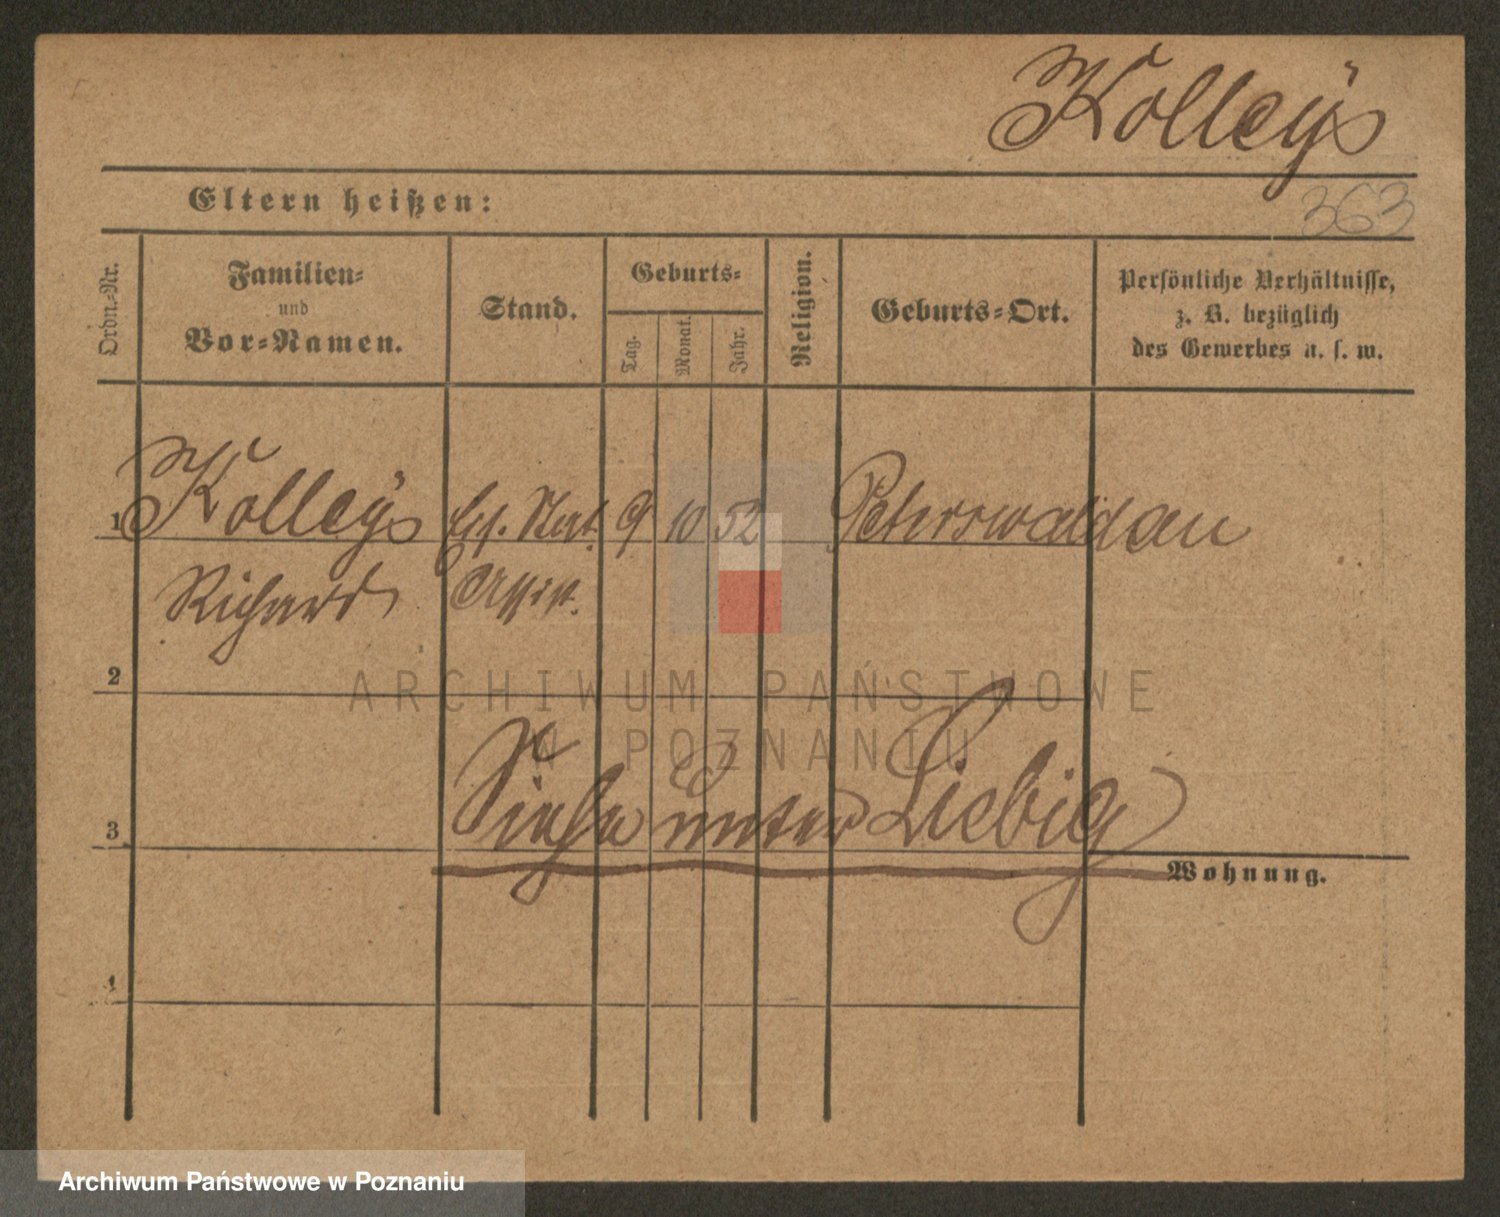 Kolleÿs
Eltern heißen:
363
Ordn.-Nr.
Familien-
und
Vor-Namen.
Stand.
Geburts-
Tag.
Monat.
Jahr.
Religion.
Geburts-Ort.
Persönliche Verhältnisse,
z. B. bezüglich
des Gewerbes u. s. w.
1 Kolleÿs 9 10 52 Peterswaldau
Richard Assist.
2
ARCHIWUM PAŃSTWOWE
W POZNANIU
Siehe unter Liebig
3
Wohnung.
4
Archiwum Państwowe w Poznaniu